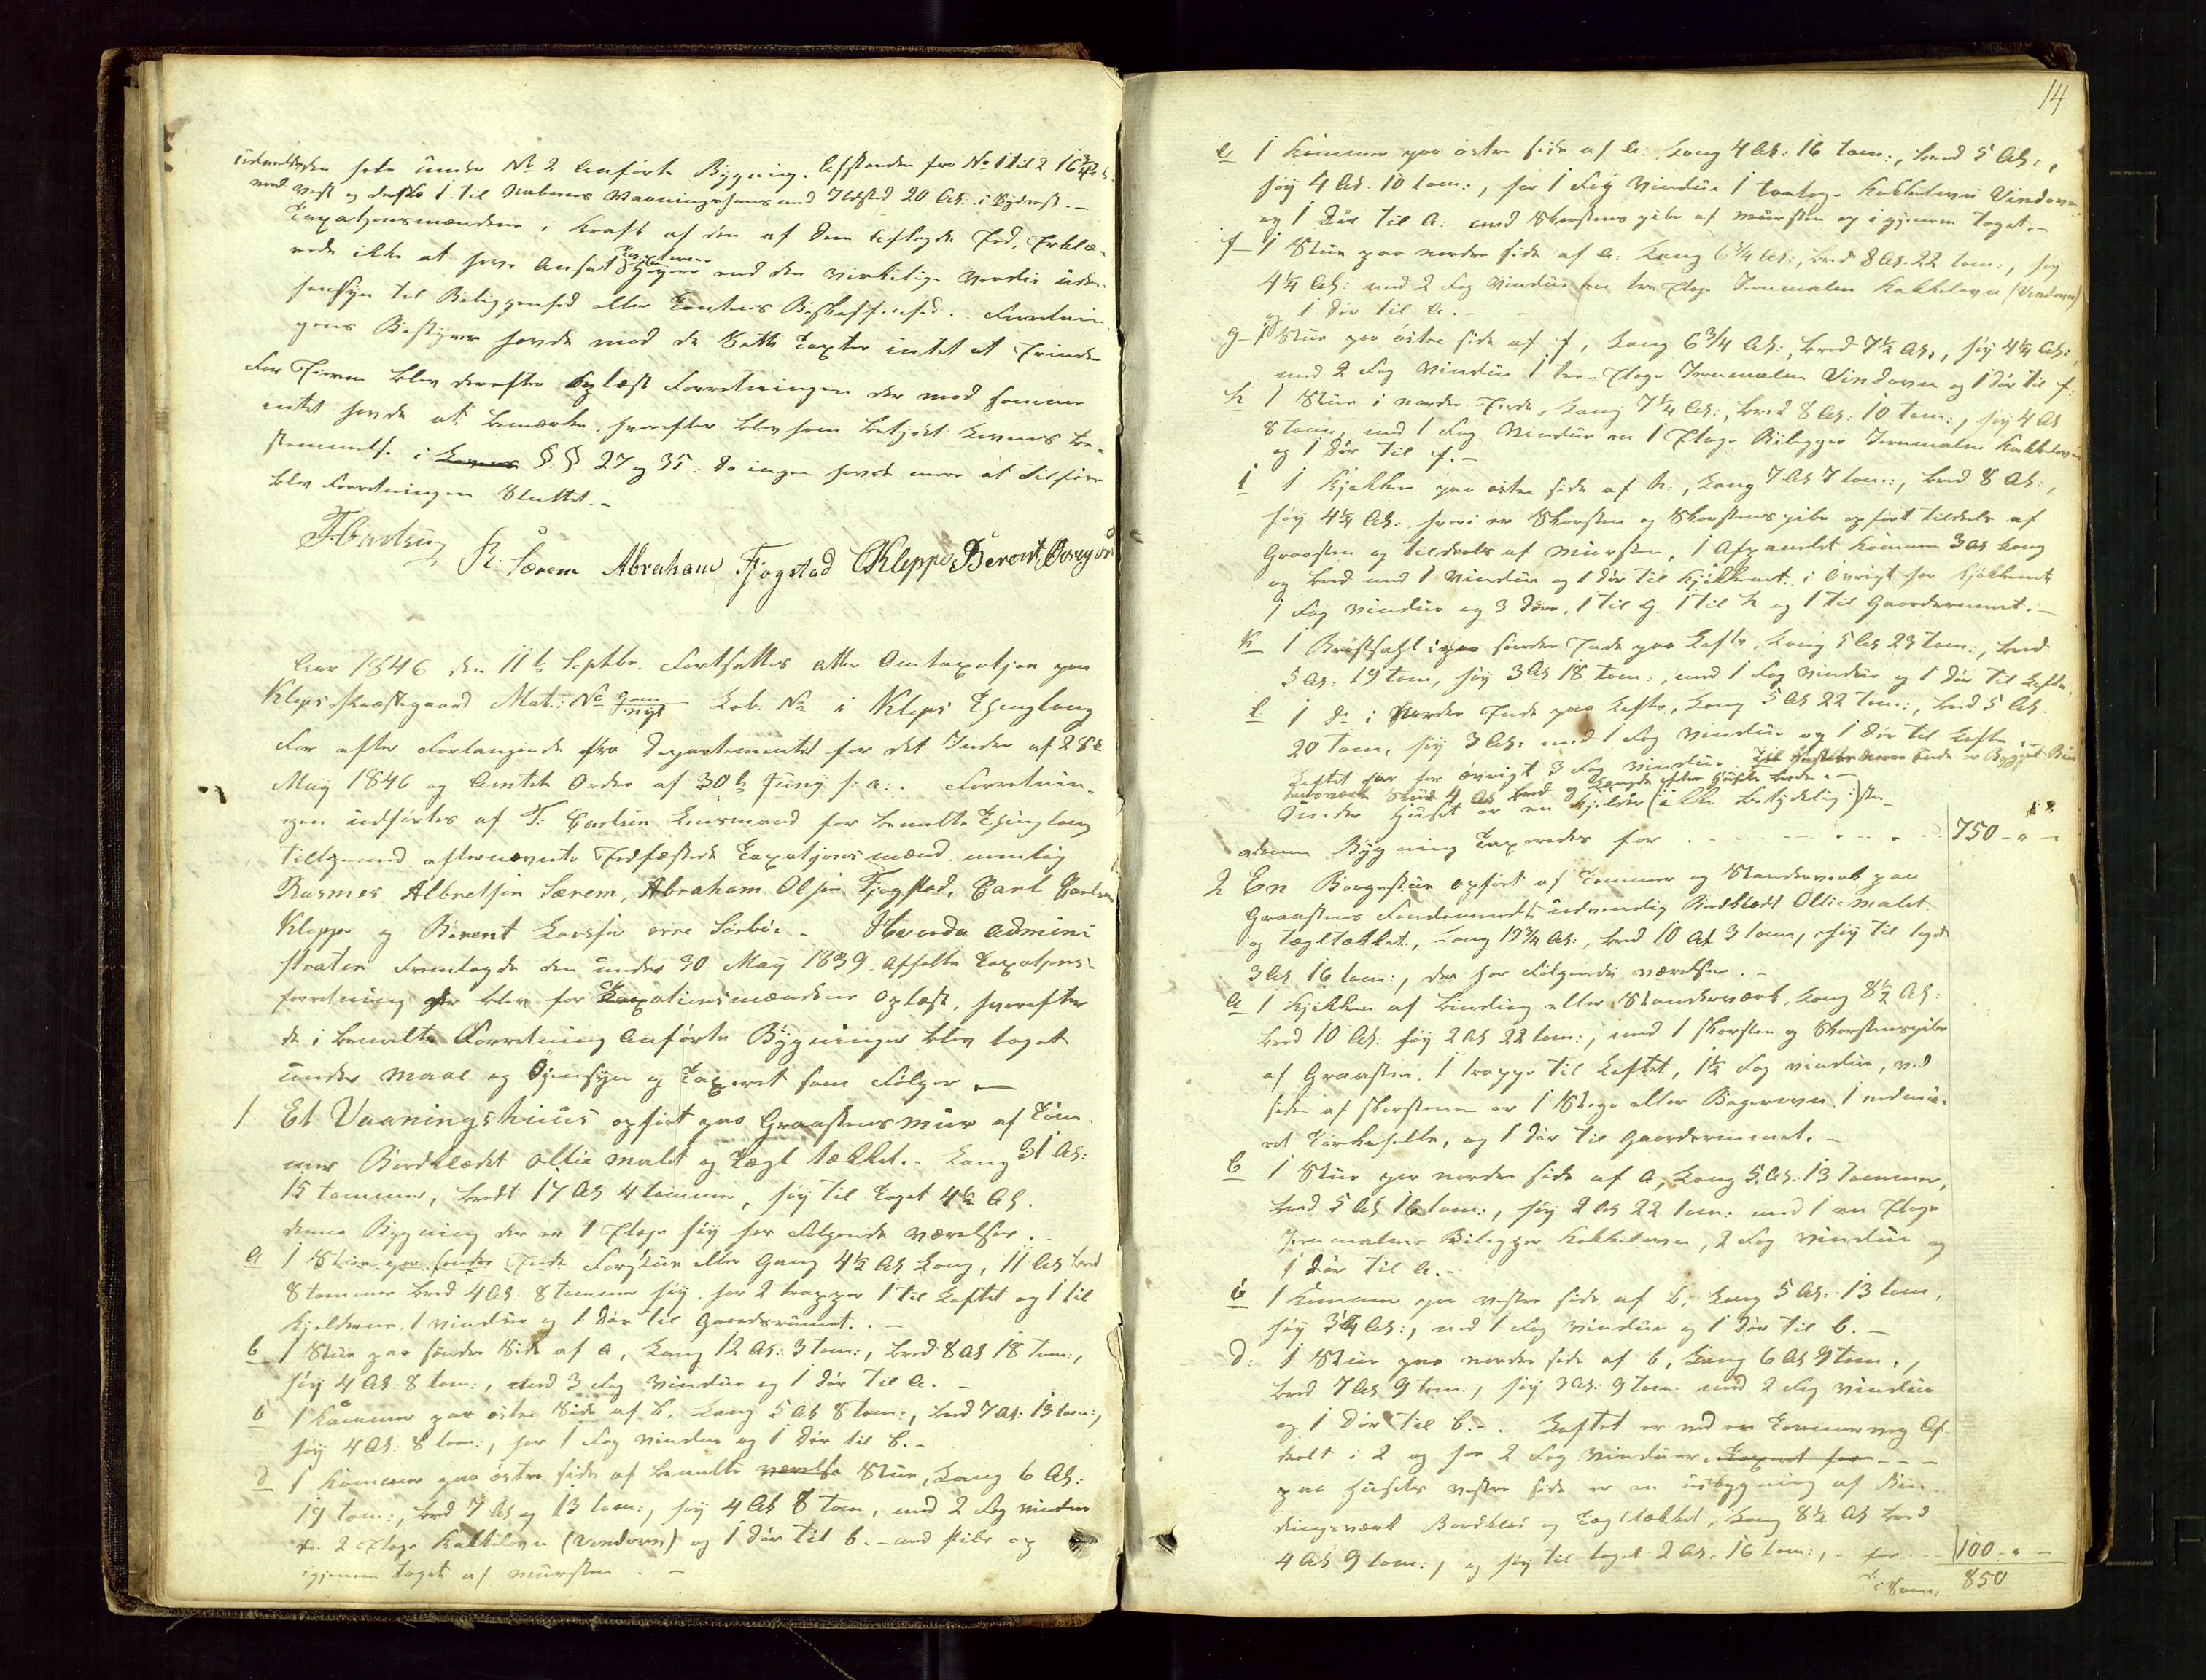 under No 2 anførte Bygning. Afstanden fra No 1 til 2 16¾ Al.
mod Vest og derfra 1 til Naboens Vaaningshuus med Ildsted 20 Al: i Sydvest.-
Taxationsmændene i Kraft af den af dem aflagde Eed, Erklæ-
rede ikke at have Ansat høyere end den virkelige Værdie uden
hensyn til Beliggenhed eller Tomtens Beskaffenhed. Forretnin-
gens Bestyrer havde mod de Satte Taxter intet at Erindre
For Eieren blev derefter Oplæst Forretningen der mod samme
intet havde at bemærke. hvorefter blev ham betydet Lovens be-
stemmelse i §.§ 27 og 35. da ingen havde mere at Tilføre
blev Forretningen Sluttet.-
R: Særem Abraham Fjogstad CKleppe Berent
Aar 1846 den 11te Septbr: Fortsattes etter Omtaxatjon paa
Kleps Præstegaard Mat: No Løb: No i Kleps Thinglaug
For efter Forlangende fra Departementet for det Indre af 28de
May 1846 og Amtets Ordre af 30te Juny s: a:. Forretnin-
gen udførtes af T: Lensmand for bemelte Thinglaug
tilligemed efternævnte Edfæstede Taxatjons mænd nemlig
Rasmus Albretsen Særem, Abraham Olsen Fjogstad, Carl
Kleppe og Berent Larssen Hvorda admini
stratør Fremlagde den under 30 May 1839 afholte Taxatjons-
forretning der blev for Taxationsmændene Oplæst, hvorefter
de i bemelte Forretning Anførte Bygninger blev taget
under maal og Øyensyn og Taxeret som Følger.-
1 Et Vaaningshuus opført paa Graasteens muur af Tøm-
mer Bordklædt ollie malet og Tegl tækket. Lang 31 Al:
15 tommer, bredt 17 Al 4 tommer, høy til Taget 4½ Al.
denne Bygning der er 1 Etage høy har Følgende værelser.
a 1 Stue paa søndre Ende Forstue eller Gang 4½ Al Lang, 11 Al bred
8 tommer bred 4 Al: 8 tommer høy. har 2 trapper 1 til Loftet og 1 til
Kjelderen. 1 vindue og 1 Dør til Gaardsrumet.-
b 1 Stue paa søndre Side af a, Lang 12 Al: 3 tom:, bred 8 Al 18 tom:,
høy 4 Al: 8 tom:, med 3 Fag Vindue og 1 dør til a.-
c 1 Kammer paa østre Side af b. Lang 5 Al 8 tom:, bred 7 Al: 13 tom:,
høy 4 Al: 8 tom:, har 1 Fag Vindue og 1 Dør til b.-
d 1 Kammer paa østre side af bemelte værelse Stue, Lang 6 Al:
19 tom:, bred 7 Al og 13 tom:, høy 4 Al 8 tom, med 2 Fag vindue
en 2 Etage Kakkelovn (Vindovn) og 1 Dør til b.- med pibe op
igjenem taget af muursten.-
14
e 1 Kammer paa østre side af a: Lang 4 Al: 16 tom:, bred 5 Al:,
høy 4 Al. 10 tom:, har 1 Fag Vindue 1 toetage Kakkelovn Vindovn
og 1 Dør til a: med Skorstens pibe af muursten op igjenem taget.-
f- 1 Stue paa nordre side af a: Lang 6¾ Al:, bred 8 Al. 22 tom:, høy
4¼ Al: med 2 Fag Vindue en tre Etage Jernmalm Kakkelovn (Vindovn)
og 1 dør til a.-
g- 1 Stue paa østre side af f, Lang 6¾ Al:, bred 7½ Al:, høy 4¼ Al:,
med 2 Fag Vindue 1 tre-Etage Jernmalm Vindovn og 1 dør til f:
h 1 Stue i nordre Ende, Lang 7¼ Al:, bred 8 Al: 10 tom:, høy 4 Al
8 tom, med 1 Fag Vindue en 1 Etage Bilegger Jernmalm Kakkelovn
og 1 Dør til f.-
i 1 Kjøkken paa østre side af h:, Lang 7 Al 7 tom:, bred 8 Al:,
høy 4¼ Al: hvori er Skorsten og Skorstenspibe opført tildeels af
Graasten og tildeels af muursten, 1 Afpanelet Kammer 3 Al Lang
og bred med 1 Vindue og 1 dør til Kjøkkenet. i øvrigt har Kjøkkenet
1 Fag vindue og 3 døre, 1 til g. 1 til h og 1 til Gaardsrumet.-
k 1 Brøstsahl i søndre Ende paa Lofte, Lang 5 Al 23 tom:, bred
5 Al: 19 tom, høy 3 Al 18 tom:, med 1 Fag vindue og 1 dør til Lofte.
l 1 do i Nordre Ende paa Lofte, Lang 5 Al 22 tom:, bred 5 Al
20 tom, høy 3 Al: med 1 Fag vindue og 1 dør til Lofte
Loftet har for øvrigt 3 Fag Vindue.
4 Al bred og Længde efter Husets brede.-
Under Huset er en Kjelder (ikke betydelig)
denne Bygning Taxeredes for 750-"-
2 En Borgestue opført af Tømmer og Standerværk paa
Graastens Fondement udvendig Bordklædt Ollie malet
og tægltækket, Lang 19¾ Al:, bred 10 Al 3 tom, høy til taget
3 Al 16 tom:, der har Følgende værelser.-
a 1 Kjøkken af binding eller Standerværk. Lang 8½ Al:
bred 10 Al: høy 2 Al 22 tom:, med 1 Skorsten og Skorstenspibe
af Graasten, 1 trappe til Loftet, 1½ Fag vindue, ved
siden af Skorstenen er 1 Stege eller Bagerovn 1 indmu-
ret Tørkehelle, og 1 dør til Gaardsrummet.-
b 1 Stue paa nordre side af a, Lang 5 Al: 13 tommer,
bred 5 Al 16 tom:, høy 2 Al 22 tom: med 1 en Etage
Jernmalms Bilegger Kakkelovn, 2 Fag vindue og
1 dør til a.-
c 1 Kammer paa vestre side af b, Lang 5 Al: 13 tom,
høy 3¼ Al:, med 1 Fag vindue og 1 dør til b.-
d: 1 Stue paa nordre side af b, Lang 6 Al 9 tom.,
bred 7 Al 9 tom:, høy 3 Al: 9 tom: med 2 Fag vindue
og 1 Dør til b.-. Loftet er ved en Tømmervæg Af-
deelt i 2 og har 2 Fag Vinduer. Taxeret for
paa Husets vestre side er en udbygning af Bin-
dingsværk Bordklæd og Tægltækket, Lang 8½ Al bred
4 Al 9 tom:, og høy til taget 2 Al. 16 tom:,- for 100-"-
850